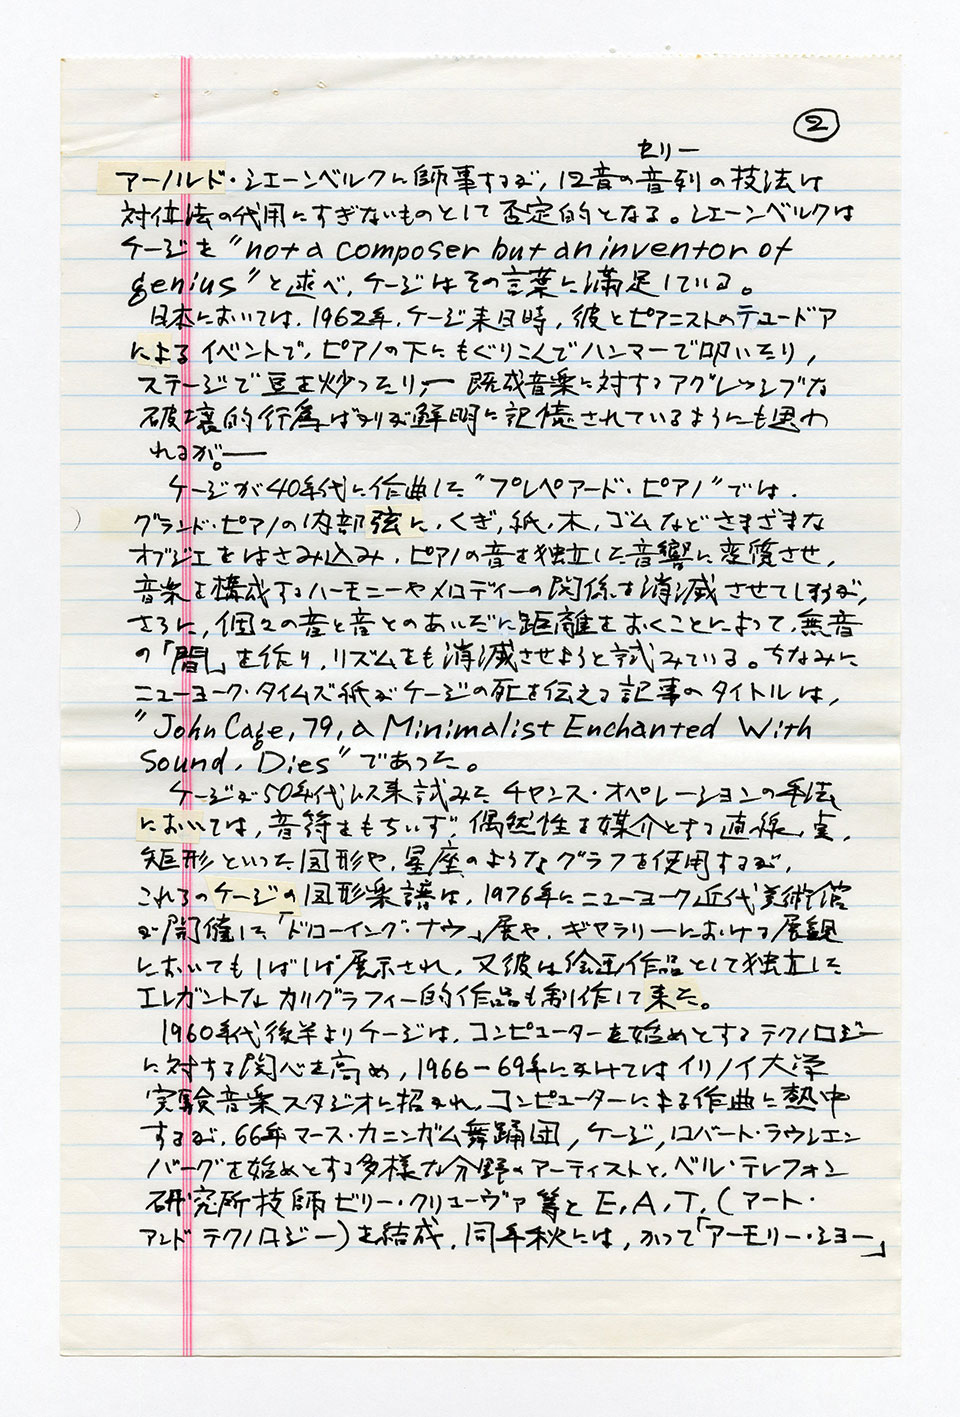 ②
セリー
アーノルド・シェーンベルクに師事するが、12音の音列の技法は
対位法の代用にすぎないものとして否定的となる。シェーンベルクは
ケージを "not a composer but an inventor of
genius" と述べ、ケージはその言葉に満足している。
日本においては、1962年、ケージ来日時、彼とピアニストのテュードア
によるイベントで、ピアノの下にもぐりこんでハンマーで叩いたり、
ステージで豆を炒ったり、— 既成音楽に対するアグレッシブな
破壊的行為ばかりが鮮明に記憶されているようにも思わ
れるが。—
ケージが40年代に作曲した "プレペアード・ピアノ" では、
グランド・ピアノの内部弦に、くぎ、紙、木、ゴムなどさまざまな
オブジェをはさみ込み、ピアノの音を独立した音響に変質させ、
音楽を構成するハーモニーやメロディーの関係を消滅させてしまうが、
さらに、個々の音と音とのあいだに距離をおくことによって、無音
の「間」を作り、リズムをも消滅させようと試みている。ちなみに
ニューヨーク・タイムズ紙がケージの死を伝える記事のタイトルは、
"John Cage, 79, a Minimalist Enchanted With
Sound, Dies" であった。
ケージが50年代以来試みたチャンス・オペレーションの手法
においては、音符をもちいず、偶然性を媒介とする直線、点、
矩形といった図形や、星座のようなグラフを使用するが、
これらのケージの図形楽譜は、1976年にニューヨーク近代美術館
が開催した「ドローイング・ナウ」展や、ギャラリーにおける展観
においてもしばしば展示され、又彼は絵画作品として独立した
エレガントなカリグラフィー的作品も制作して来た。
1960年代後半よりケージは、コンピューターを始めとするテクノロジー
に対する関心を高め、1966-69年にかけてはイリノイ大学
実験音楽スタジオに招かれ、コンピューターによる作曲に熱中
するが、66年マース・カニンガム舞踊団、ケージ、ロバート・ラウシェン
バーグを始めとする多様な分野のアーティストと、ベル・テレフォン
研究所技師ビリー・クリューヴァ等とE.A.T.(アート・
アンドテクノロジー)を結成、同年秋には、かつて「アーモリー・ショー」